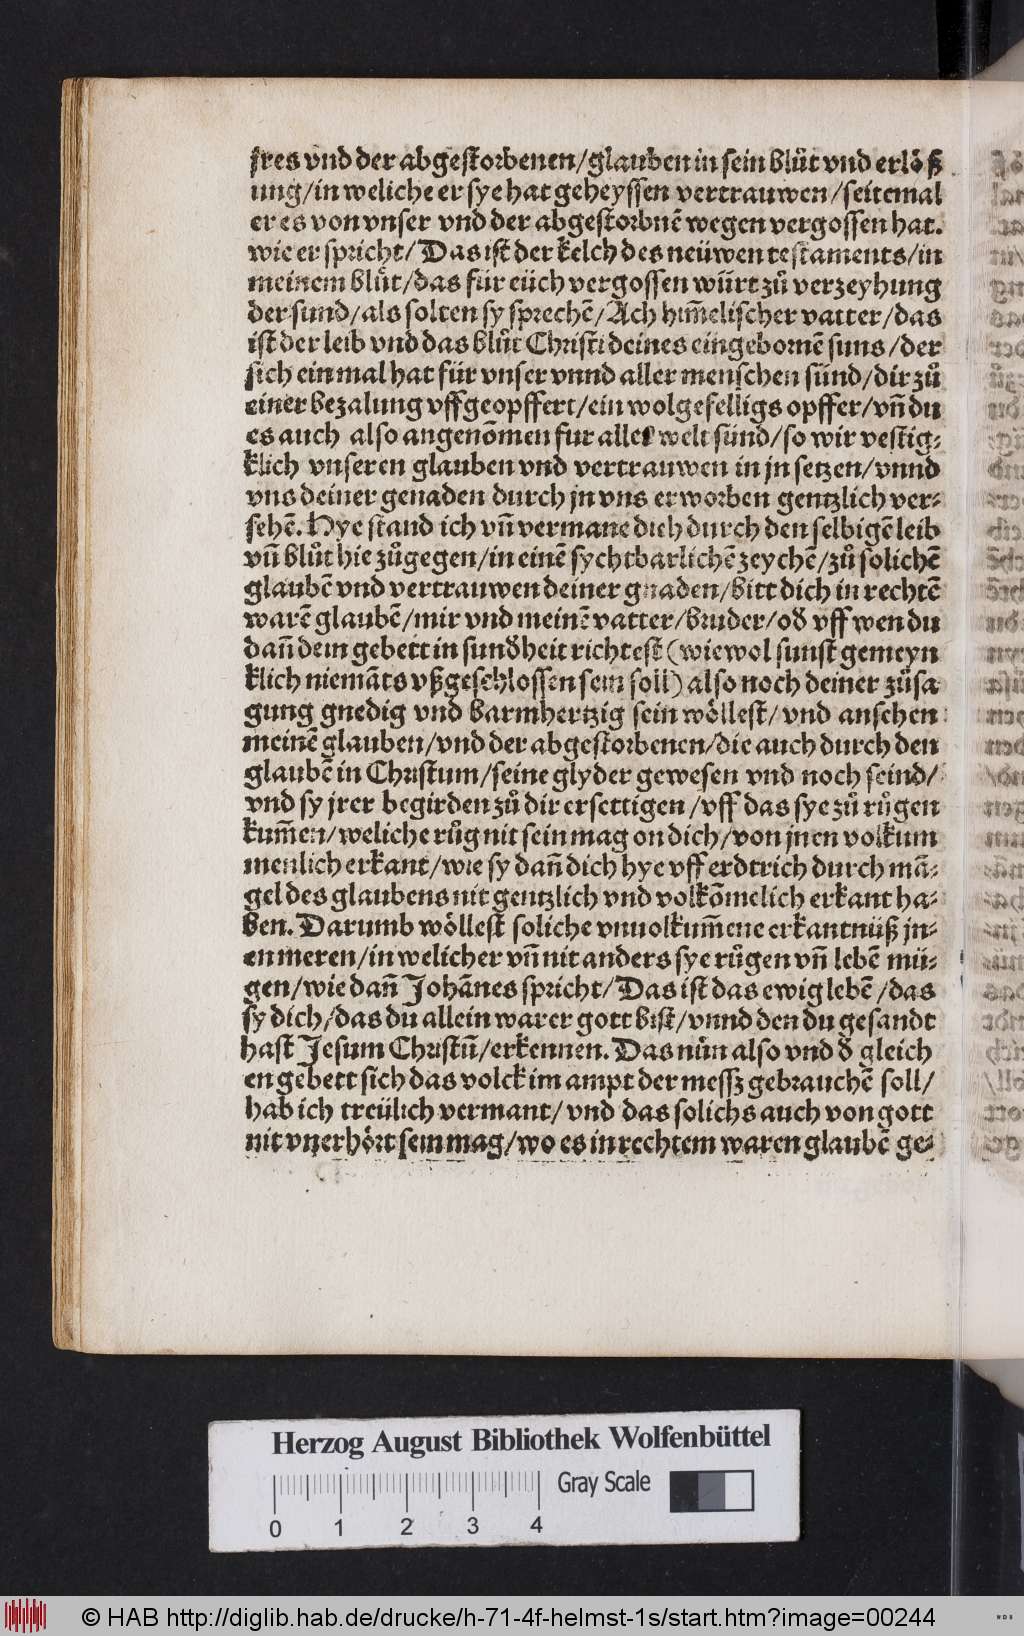 jres vnd der abgestorbenen/glauben in sein blůt vnd erlöß
ung/in weliche er sye hat geheyssen vertrauwen/seitemal
er es von vnser vnd der abgestorbnē wegen vergossen hat.
wie er spricht/Das ist der kelch des neüwen testaments/in
meinem blůt/das für eüch vergossen würt zů verzeyhung
der sund/als solten sy sprechē/Ach him̄elischer vatter/das
ist der leib vnd das blůt Christi deines eingebornē suns/der
sich ein mal hat für vnser vnnd aller menschen sünd/dir zů
einer bezalung vffgeopffert/ein wolgefelligs opffer/vn̄ du
es auch also angenōmen fur aller welt sünd/so wir vestig⸗
klich vnseren glauben vnd vertrauwen in jn setzen/vnnd
vns deiner genaden durch jn vns erworben gentzlich ver⸗
sehē. Hye stand ich vn̄ vermane dich durch den selbigē leib
vn̄ blůt hie zůgegen/in einē sychtbarlichē zeychē/zů solichē
glaubē vnd vertrauwen deiner gnaden/bitt dich in rechtē
warē glaubē/mir vnd meinē vatter/bruder/oď vff wen du
dan̄ dein gebett in sunďheit richtest (wiewol sunst gemeyn
klich niemāts vßgeschlossen sein soll) also noch deiner zůsa
gung gnedig vnd barmhertzig sein wöllest/vnd ansehen
meinē glauben/vnd der abgestorbenen/die auch durch den
glaubē in Christum/seine glyder gewesen vnd noch seind/
vnd sy jrer begirden zů dir ersettigen/vff das sye zů růgen
kum̄en/weliche růg nit sein mag on dich/von jnen volkum
menlich erkant/wie sy dan̄ dich hye vff erdtrich durch mā⸗
gel des glaubens nit gentzlich vnd volkōmelich erkant ha⸗
ben. Darumb wöllest soliche vnuolkum̄ene erkantnüß jn⸗
en meren/in welicher vn̄ nit anders sye růgen vn̄ lebē mü⸗
gen/wie dan̄ Johānes spricht/Das ist das ewig lebē/das
sy dich/das du allein warer gott bist/vnnd den du gesandt
hast Jesum Christū/erkennen. Das nůn also vnd ď gleich
en gebett sich das volck im ampt der messz gebrauchē soll/
hab ich treülich vermant/vnd das solichs auch von gott
nit vnerhört sein mag/wo es in rechtem waren glaubē ge⸗
Herzog August Bibliothek Wolfenbüttel
Gray Scale
0 1 2 3 4
© HAB http://diglib.hab.de/drucke/h-71-4f-helmst-1s/start.htm?image=00244